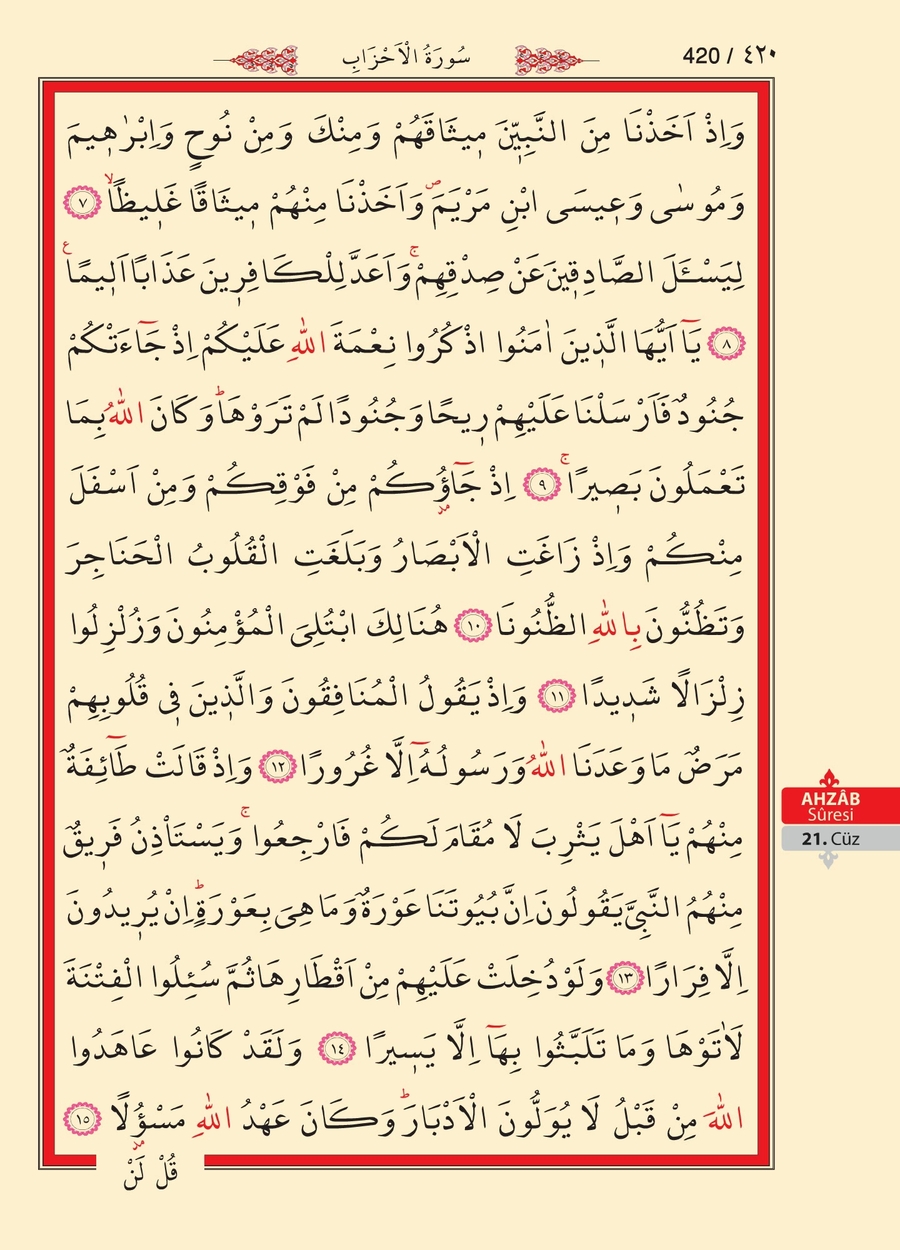 420 / ٤٢٠
سُورَةُ الْاَحْزَابِ
وَاِذْ اَخَذْنَا مِنَ النَّبِيّ۪نَ م۪يثَاقَهُمْ وَمِنْكَ وَمِنْ نُوحٍ وَاِبْرٰه۪يمَ
وَمُوسٰى وَع۪يسَى ابْنِ مَرْيَمَۖ وَاَخَذْنَا مِنْهُمْ م۪يثَاقًا غَل۪يظًاۙ ﴿٧﴾
لِيَسْـَٔلَ الصَّادِق۪ينَ عَنْ صِدْقِهِمْۚ وَاَعَدَّ لِلْكَافِر۪ينَ عَذَابًا اَل۪يمًا ع
﴿٨﴾ يَٓا اَيُّهَا الَّذ۪ينَ اٰمَنُوا اذْكُرُوا نِعْمَةَ اللّٰهِ عَلَيْكُمْ اِذْ جَٓاءَتْكُمْ
جُنُودٌ فَاَرْسَلْنَا عَلَيْهِمْ ر۪يحًا وَجُنُودًا لَمْ تَرَوْهَاۜ وَكَانَ اللّٰهُ بِمَا
تَعْمَلُونَ بَص۪يرًاۚ ﴿٩﴾ اِذْ جَٓاؤُ۫كُمْ مِنْ فَوْقِكُمْ وَمِنْ اَسْفَلَ
مِنْكُمْ وَاِذْ زَاغَتِ الْاَبْصَارُ وَبَلَغَتِ الْقُلُوبُ الْحَنَاجِرَ
وَتَظُنُّونَ بِاللّٰهِ الظُّنُونَا ﴿١٠﴾ هُنَالِكَ ابْتُلِيَ الْمُؤْمِنُونَ وَزُلْزِلُوا
زِلْزَالًا شَد۪يدًا ﴿١١﴾ وَاِذْ يَقُولُ الْمُنَافِقُونَ وَالَّذ۪ينَ ف۪ي قُلُوبِهِمْ
مَرَضٌ مَا وَعَدَنَا اللّٰهُ وَرَسُولُـهُٓ اِلَّا غُرُورًا ﴿١٢﴾ وَاِذْ قَالَتْ طَٓائِفَةٌ
مِنْهُمْ يَٓا اَهْلَ يَثْرِبَ لَا مُقَامَ لَكُمْ فَارْجِعُواۚ وَيَسْتَأْذِنُ فَر۪يقٌ
مِنْهُمُ النَّبِيَّ يَقُولُونَ اِنَّ بُيُوتَنَا عَوْرَةٌ وَمَا هِيَ بِعَوْرَةٍۜ اِنْ يُر۪يدُونَ
اِلَّا فِرَارًا ﴿١٣﴾ وَلَوْ دُخِلَتْ عَلَيْهِمْ مِنْ اَقْطَارِهَا ثُمَّ سُئِلُوا الْفِتْنَةَ
لَاٰتَوْهَا وَمَا تَلَبَّثُوا بِهَٓا اِلَّا يَس۪يرًا ﴿١٤﴾ وَلَقَدْ كَانُوا عَاهَدُوا
اللّٰهَ مِنْ قَبْلُ لَا يُوَلُّونَ الْاَدْبَارَۜ وَكَانَ عَهْدُ اللّٰهِ مَسْؤُ۫لًا ﴿١٥﴾
قُلْ لَنْ
AHZÂB
Sûresi
21. Cüz